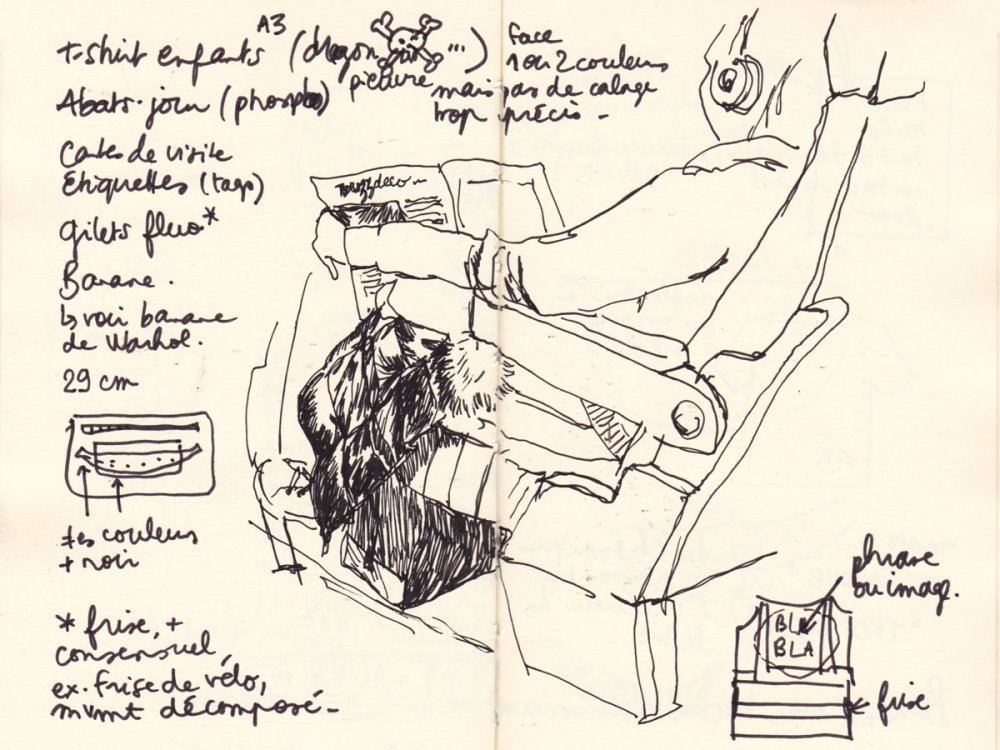 A3
t-shirt enfants (dragon, picture ...) face
1 ou 2 couleurs
mais pas de calage
trop précis -
Abats-jour (phospho)
Cartes de visite
Etiquettes (tags)
gilets fluo*
Banane.
↳ voir banane
de Warhol.
29 cm
≠es couleurs
+ noir
* frise, +
consensuel,
ex. frise de vélo,
mvmt décomposé -
deco
phrase
ou image.
BLA
BLA
frise